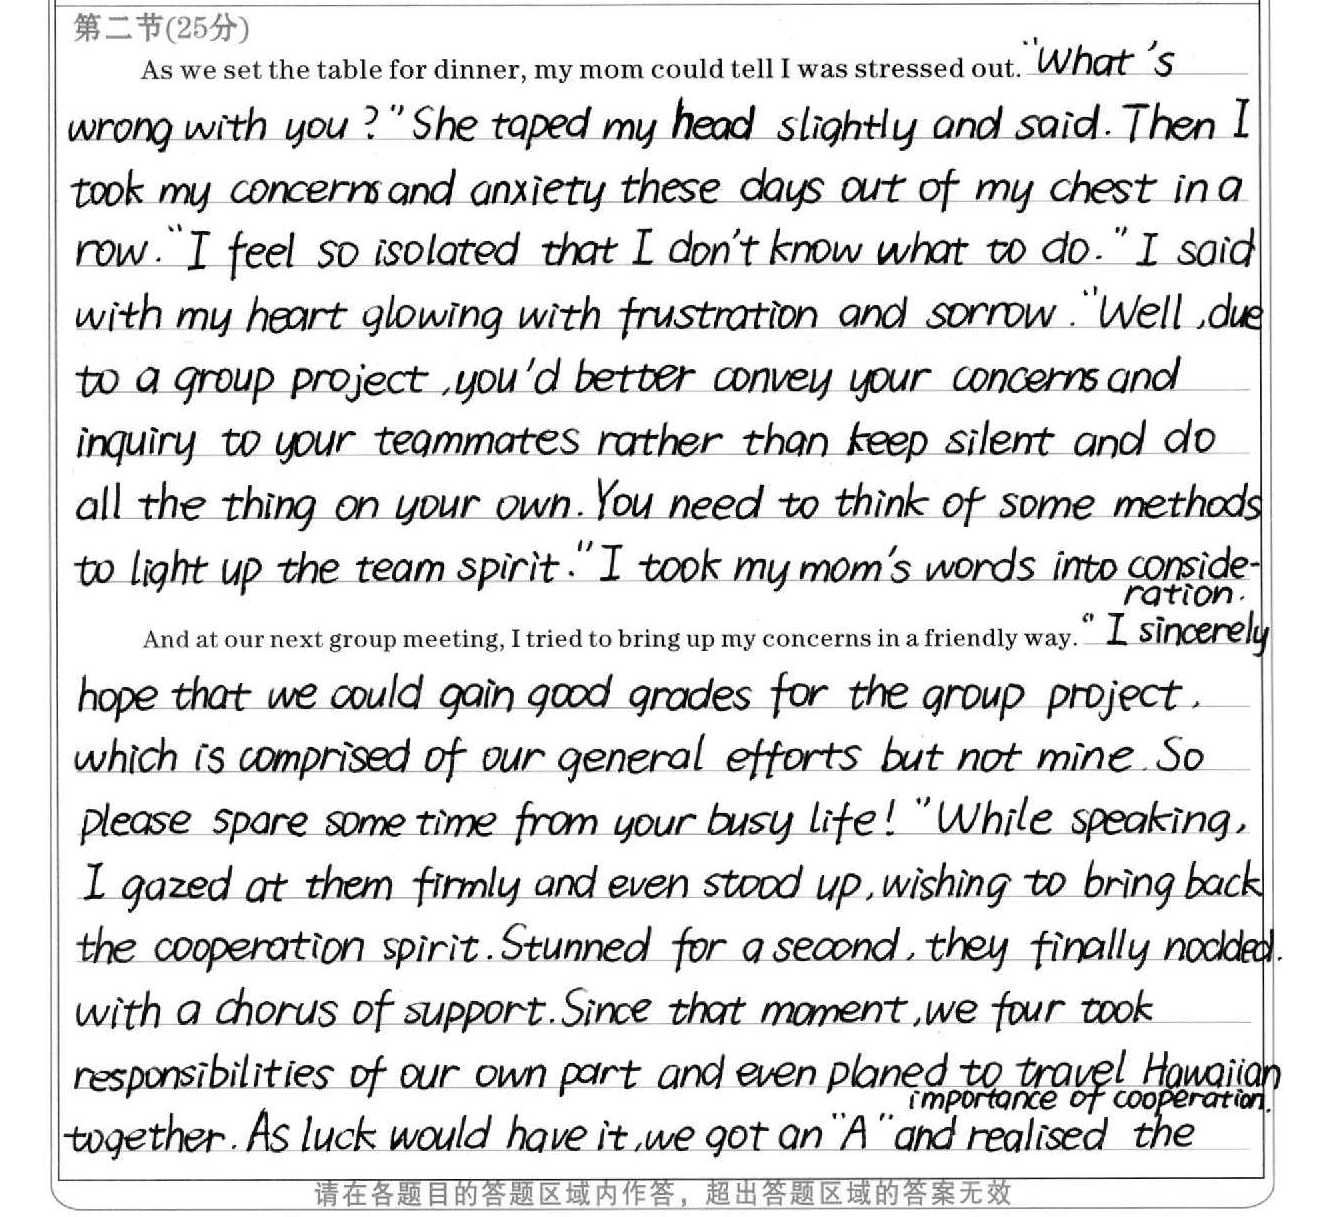 第二节(25分)
As we set the table for dinner, my mom could tell I was stressed out. "What's
wrong with you?" She taped my head slightly and said. Then I
took my concerns and anxiety these days out of my chest in a
row. "I feel so isolated that I don't know what to do." I said
with my heart glowing with frustration and sorrow. "Well, due
to a group project, you'd better convey your concerns and
inquiry to your teammates rather than keep silent and do
all the thing on your own. You need to think of some methods
to light up the team spirit." I took my mom's words into conside-
ration.
And at our next group meeting, I tried to bring up my concerns in a friendly way. "I sincerely
hope that we could gain good grades for the group project,
which is comprised of our general efforts but not mine. So
please spare some time from your busy life!" While speaking,
I gazed at them firmly and even stood up, wishing to bring back
the cooperation spirit. Stunned for a second, they finally nodded.
with a chorus of support. Since that moment, we four took
responsibilities of our own part and even planed to travel Hawaiian
together. As luck would have it, we got an "A" and realised the
importance of cooperation.
请在各题目的答题区域内作答，超出答题区域的答案无效